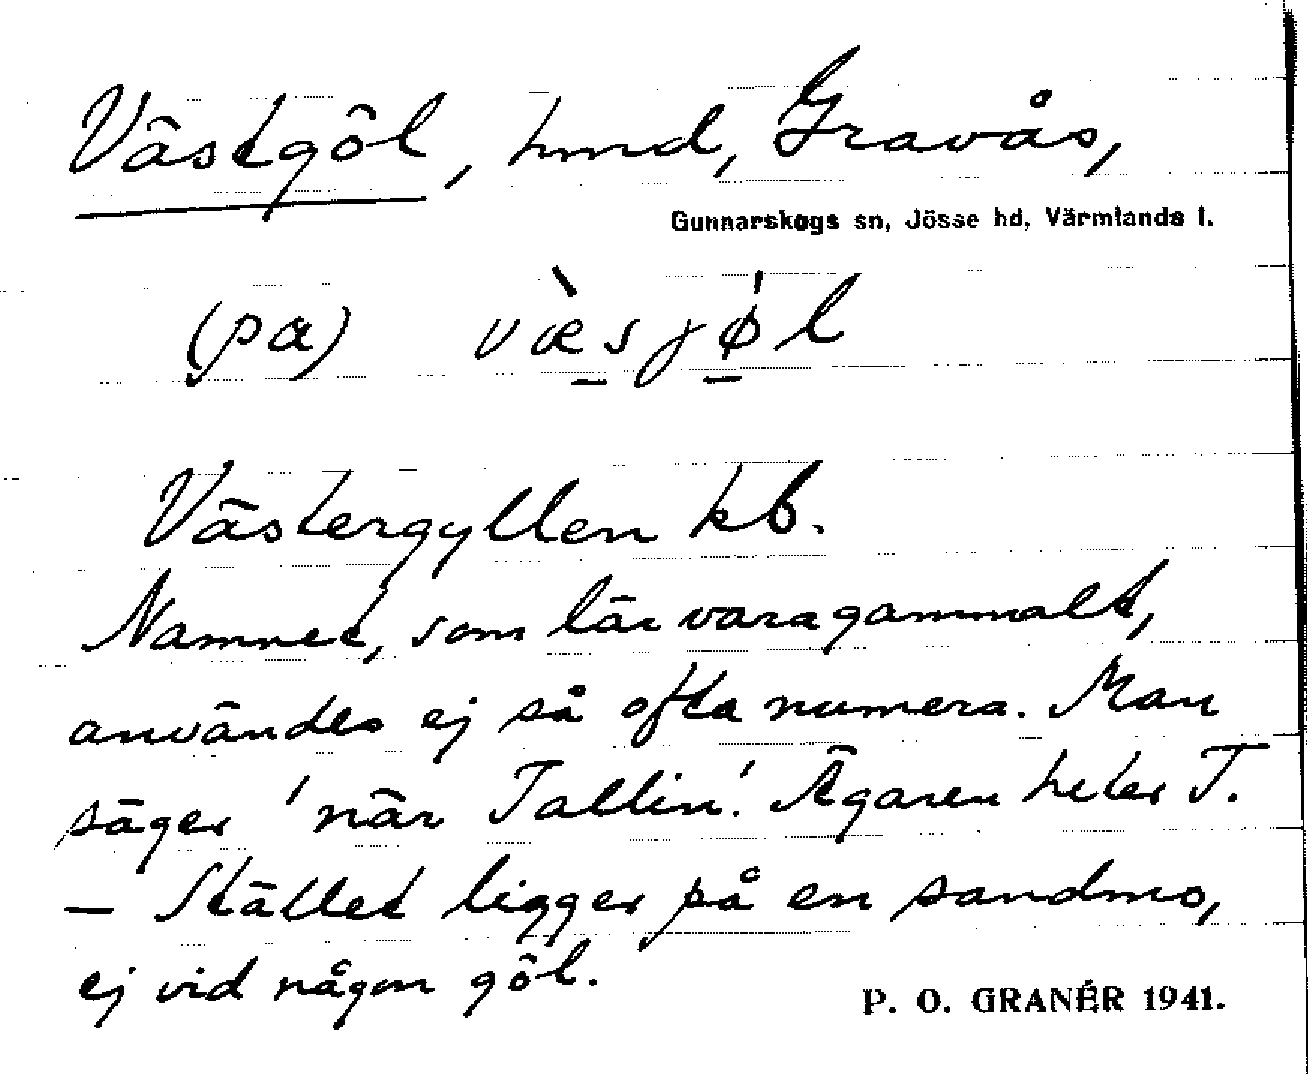 Västgöl, hmd, Gravås,
Gunnarskogs sn, Jösse hd, Värmlands l.
(pa) væ̀sjǿl
Västergyllen kb.
Namnet, som lär vara gammalt,
användes ej så ofta numera. Man
säger 'när Tallin'. Ägaren heter T.
— Stället ligger på en sandmo,
ej vid någon göl.
P. O. GRANÉR 1941.